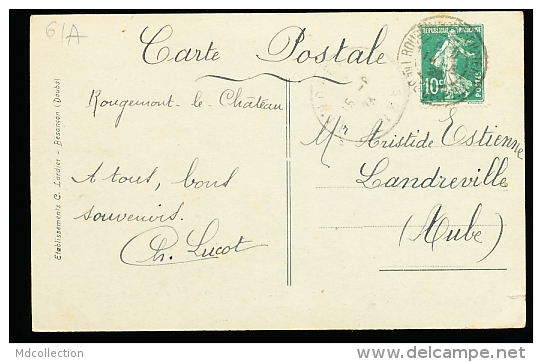 61A
Carte Postale
REPUBLIQUE FRANÇAISE
10c
POSTES
Rougemont-le-Château
A tous, bons
souvenirs.
Ch. Lucot
M Aristide Estienne
Landreville
(Aube)
Etablissements C. Lardier - Besançon (Doubs)
Mdcollection
http://www.delcampe.net